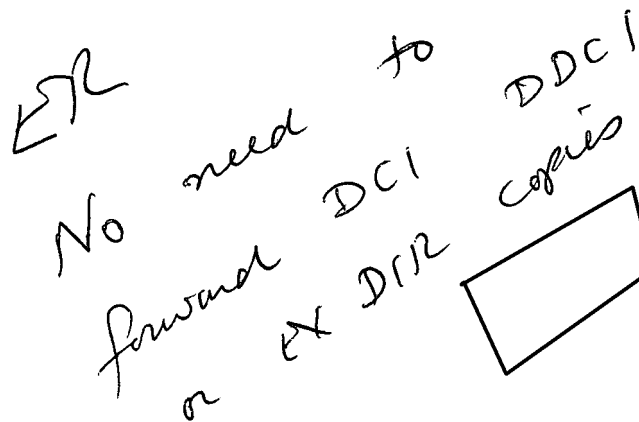 ER
No need to
forward DCI DDCI
or EX DIR copies